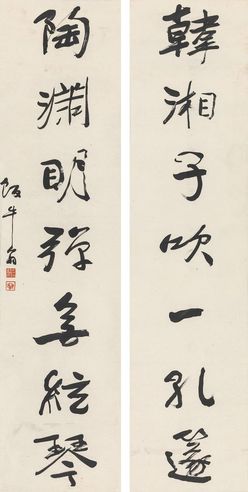 韓湘子吹一孔篴
陶淵明彈無絃琴
飯牛翁